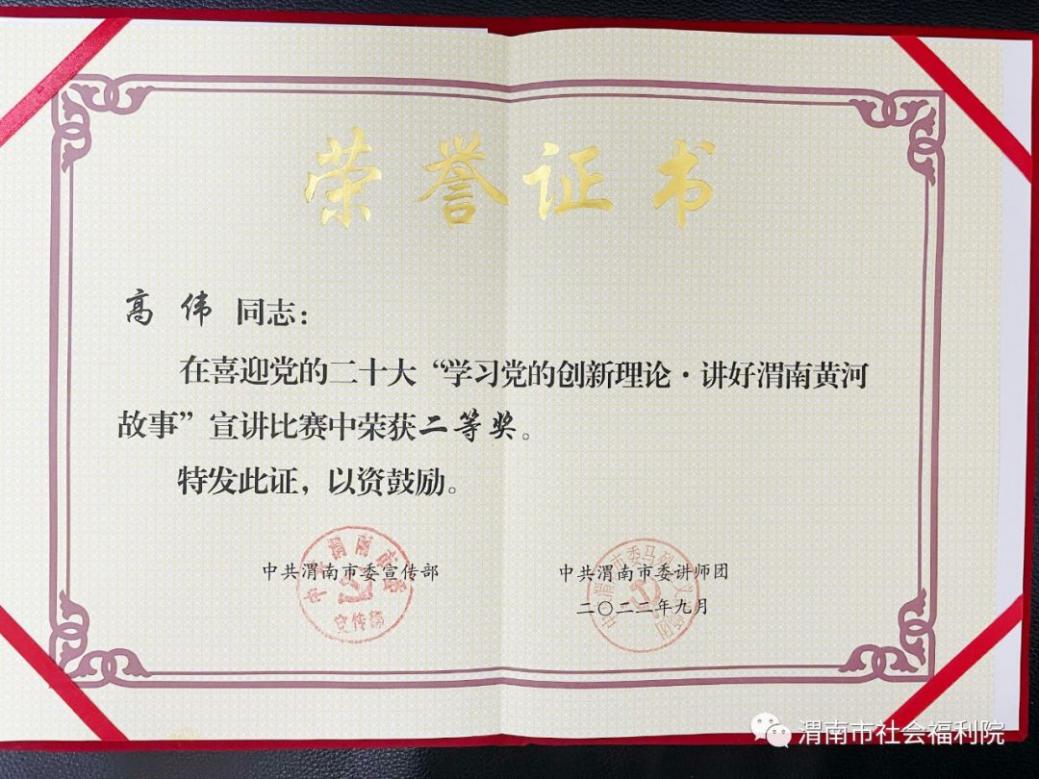 荣誉证书
高 伟 同志：
在喜迎党的二十大“学习党的创新理论·讲好渭南黄河
故事”宣讲比赛中荣获二等奖。
特发此证，以资鼓励。
中共渭南市委宣传部
中共渭南市委讲师团
二〇二二年九月
中共渭南市委
宣传部
渭南市社会福利院